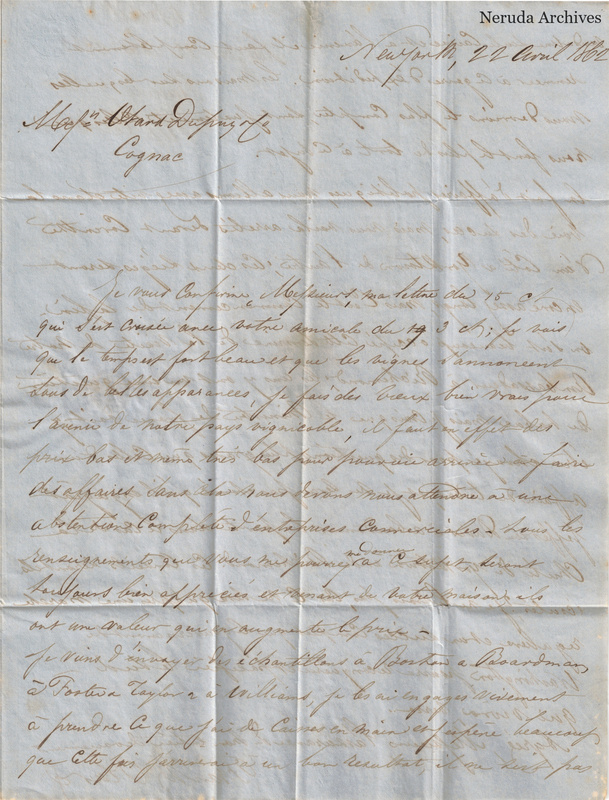 Neruda Archives
New york, 22 avril 1862
Mess.rs Otard Dupuy & Co
Cognac
Je vous Confirme, Messieurs, ma lettre du 15 Ct
qui s'est croisée avec votre amicale du 3 Ct; je vois
que le temps est fort beau et que les vignes s'annoncent
sous de belles apparances, je fais des vœux bien vrais pour
l'avenir de notre pays vignicole, il faut en effet des
prix bas et même très bas pour pouvoir arriver à faire
des affaires, sans cela nous devons nous attendre a une
abstention Complète d'entreprises Commerciales. Tous les
renseignements que vous me pourrez à Ce sujet seront
toujours bien appréciés et venant de votre maison, ils
ont une valeur qui en augmente le prix.
Je viens d'envoyer des échantillons à Boston a Boardman,
à Foster & Taylor & a Williams, je les ai engagés vivement
à prendre Ce que j'ai de Caisses en main et j'espère beaucoup
que Cette fois j'arriverai a un bon résultat il ne sera pas